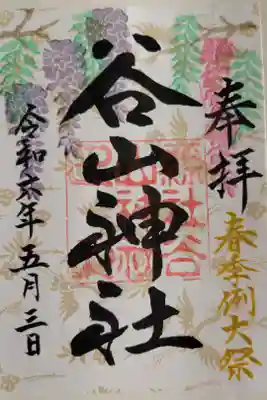 奉拝
春季例大祭
谷山神社
令和元年五月三日